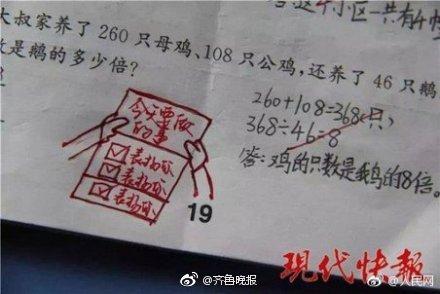 这个小区一共有4幢
大叔家养了260只母鸡、108只公鸡，还养了46只鹅
数是鹅的多少倍？
260+108=368(只)
368÷46=8
答:鸡的只数是鹅的8倍。
今天要做
的事
表扬你
表扬你
表扬你
19
现代快报
@齐鲁晚报
@人民网